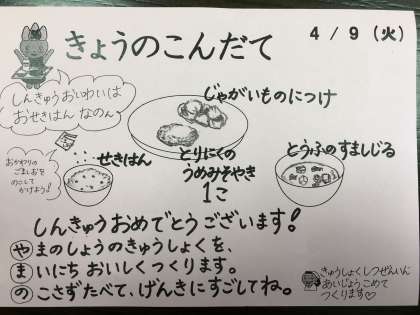 きょうのこんだて
4/9（火）
しんきゅうおいわいは
おせきはん なのん
じゃがいものにつけ
おかわりの
ごましおを
のこして
かけよう！
せきはん
とりにくの
うめみそやき
1こ
とうふのすましじる
しんきゅうおめでとうございます！
やまのしょうのきゅうしょくを、
まいにち おいしくつくります。
のこさずたべて、げんきにすごしてね。
きゅうしょくしつぜんいん
あいじょうこめて
つくります♡